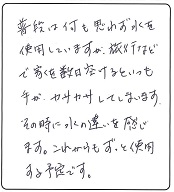 普段は何も思わず水を
使用していますが、旅行など
で家を数日空けるといつも
手が、カサカサしてしまいます。
その時に水の違いを感じ
ます。これからもずっと使用
する予定です。